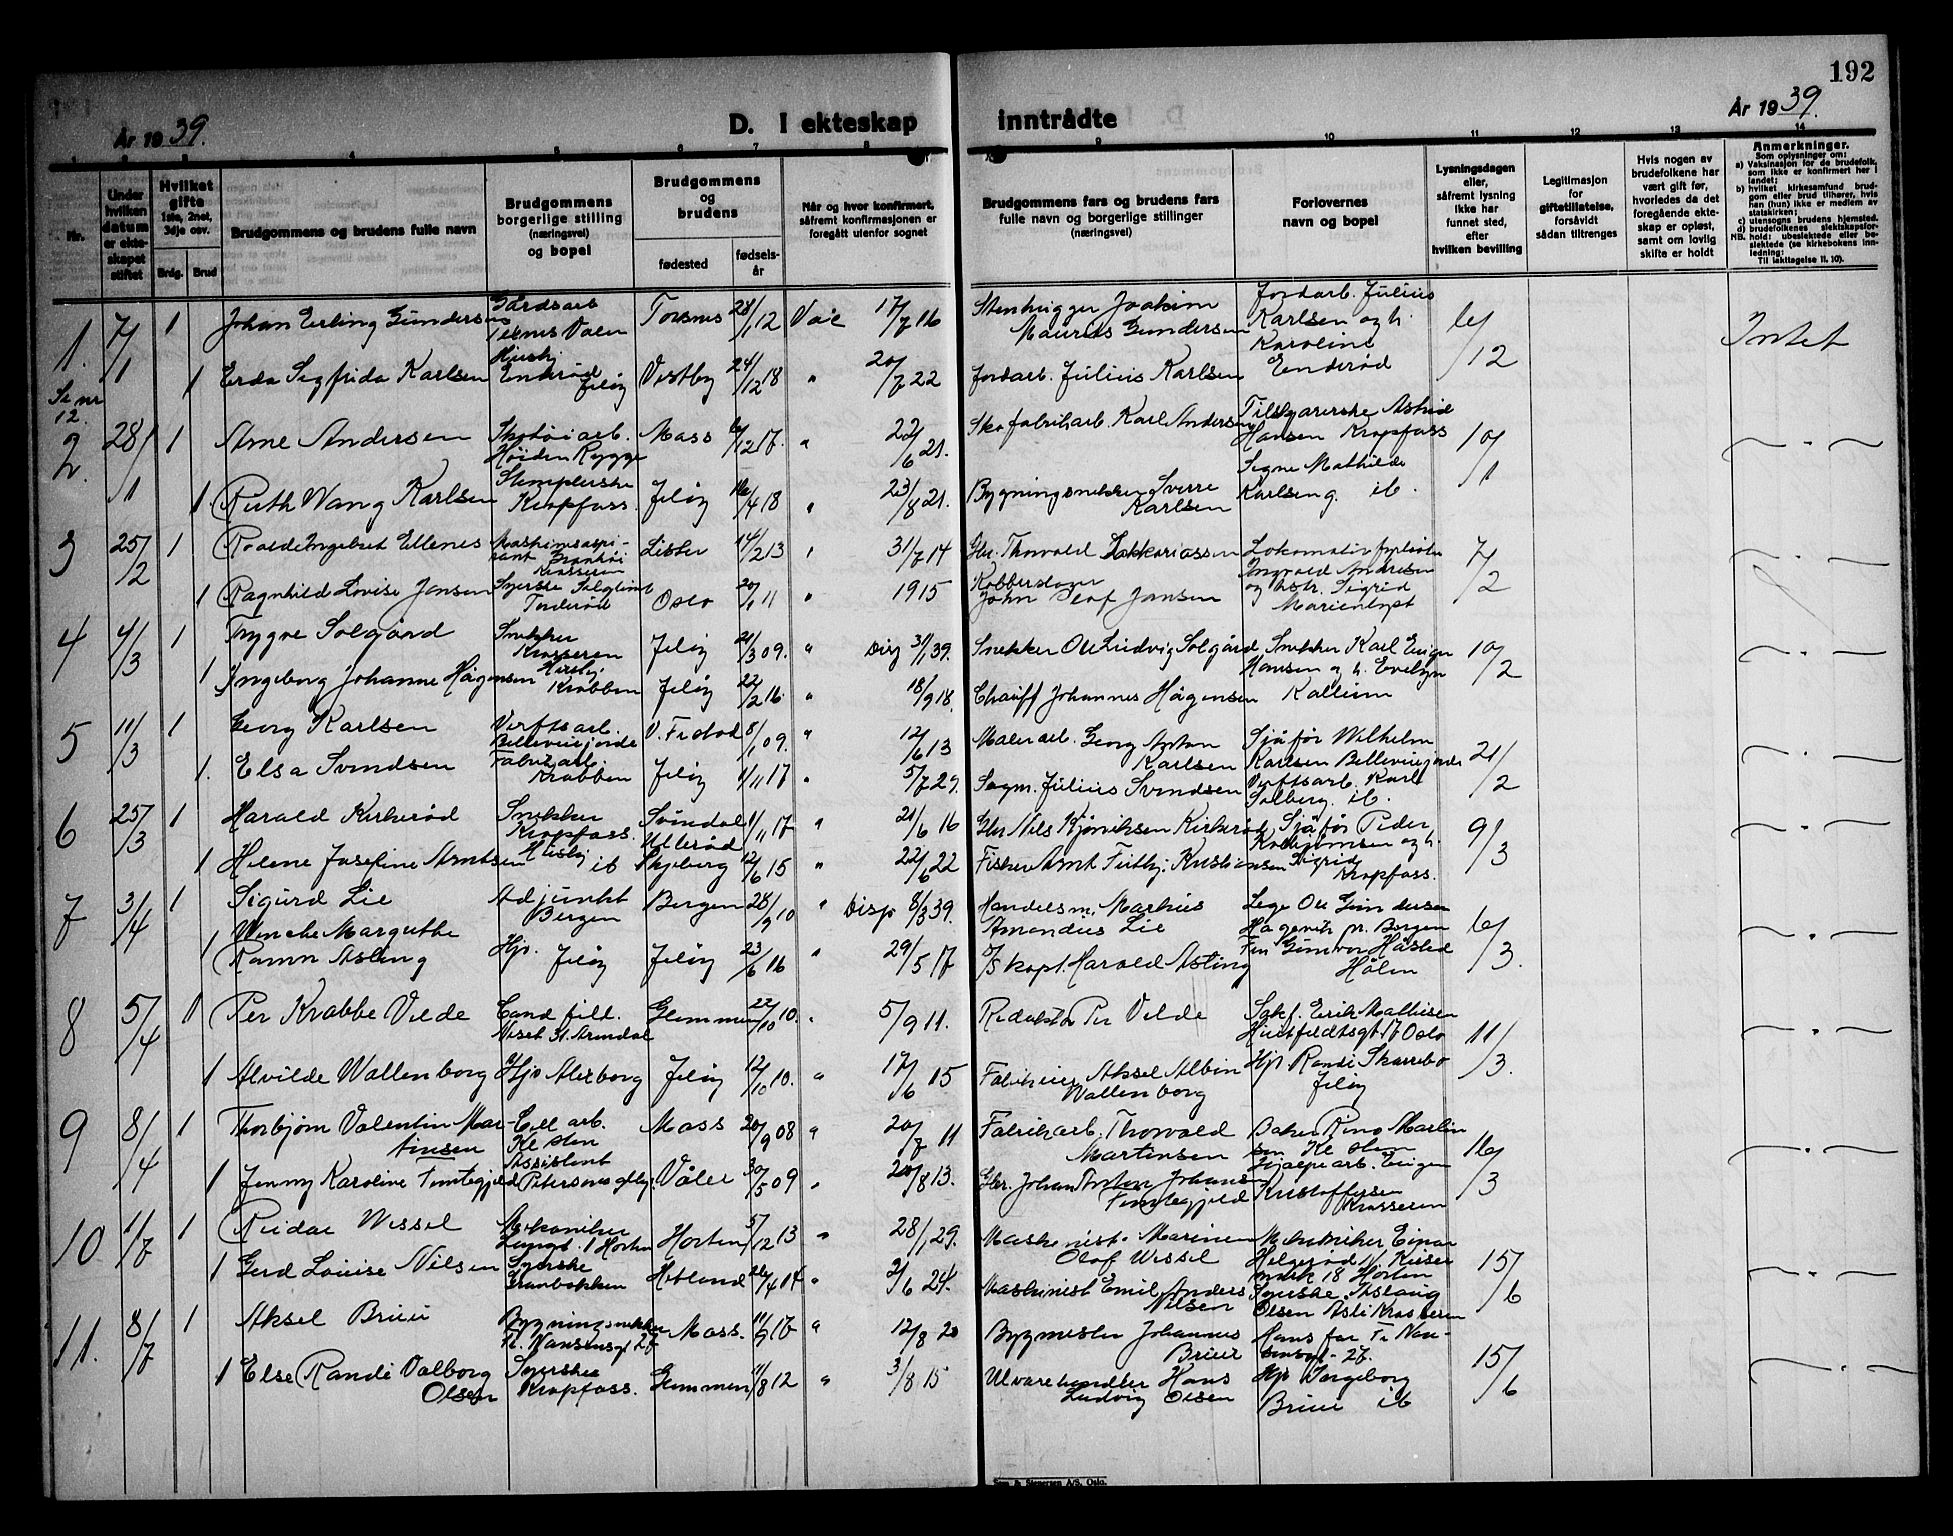 192
År 1939.
D. I ekteskap inntrådte
År 1939.
1 2 3 4 5 6 7 8 9 10 11 12 13 14
Nr.
Under hvilken datum er ekteskapet stiftet
Hvilket gifte 1ste, 2net, 3dje osv.
Brdg. Brud
Brudgommens og brudens fulle navn
Brudgommens borgerlige stilling (næringsvei) og bopel
Brudgommens og brudens
fødested
fødselsår
Når og hvor konfirmert, såfremt konfirmasjonen er foregått utenfor sognet
Brudgommens fars og brudens fars fulle navn og borgerlige stillinger (næringsvei)
Forlovernes navn og bopel
Lysningsdagen eller, såfremt lysning ikke har funnet sted, efter hvilken bevilling
Legitimasjon for giftetillatelse, forsåvidt sådan tiltrenges
Hvis nogen av brudefolkene har vært gift før, hvorledes da det foregående ekteskap er opløst, samt om lovlig skifte er holdt
Anmerkninger.
Som oplysninger om:
a) Vaksinasjon for de brudefolk, som ikke er konfirmert her i landet;
b) hvilket kirkesamfund brudgom eller brud tilhører, hvis han (hun) ikke er medlem av statskirken;
c) utensogns brudens hjemsted.
d) brudefolkenes slektskapsforhold: ubeslektede eller beslektede (se kirkebokens innledning;
NB. Til iakttagelse II. 10).
1. 7/1 1 Johan Erling Gundersen Gårdsarb Torsnes 28/1 12 17/7 16 Stenhugger Joakim Maurits Gundersen Jordarb. Julius Karlsen og h. Karoline Enderød 6/12 Intet
Se nr 12.
1 Erda Sigfrida Karlsen Husbj Enderød Jeløy Vestby 24/12 18 " 20/7 22 Jordarb. Julius Karlsen
2. 28/1 1 Arne Andersen Skotøiarb. Høiden Rygge Moss 6/12 17. " 22/6 21. Skofabrikarb. Karl Andersen Tilskjærerske Astrid Hansen Kropfoss 10/1 ~ " ~
1 Ruth Wang Karlsen Stemplerske Kropfoss. Jeløy 16/4 18 " 23/8 21. Bygningsnekker Sverre Karlsen Signe Mathilde Karlsen g. ib.
3 25/2 1 Roald Ingebret Ellenes Maskinaspirant Krosseren Lister 14/2 13 " 31/7 14 Gbr. Thorvald Zakkariassen Lokomotivfyrbøter Ingvald Andresen og hstr. Sigrid Marienlyst 7/2 ~ " ~
1 Ragnhild Lovise Jansen Syerske Solgløtt Tinderød Oslo 20/1 11 " 1915 Kobberslager John Olaf Jansen
4 4/3 1 Trygve Solgård Snekker Krosseren Jeløy 21/3 09. " Disp 31/1 39. Snekker Ole Ludvig Solgård Snekker Karl Eugen Hansen og h. Evelyn Kallum 10/2 ~ " ~
1 Ingeborg Johanne Hågensen Husbj Krabben Jeløy 22/2 16 " 18/9 18. Chauff Johannes Hågensen
5 11/3 1 Georg Karlsen Verftsarb. Bellevuejordet V. Fr.stad 8/1 09. " 12/6 13 Malerarb. Georg Anton Karlsen Sjåfør Wilhelm Karlsen Bellevuejordet 21/2 ~ " ~
1. Elsa Svendsen Fabrikarb. Krabben Jeløy 1/11 17 " 5/7 29. Sagm. Julius Svendsen Verftsarb. Karl Solberg. ib.
6 25/3 1 Harald Kirkerød Snekker Kropfoss. Svindal 1/11 17 " 21/6 16 Gbr Nils Kjøniksen Kirkerød Sjåfør Peder og h. Sigrid Kropfoss. 9/3 ~ " ~
1 Helene Josefine Arntsen Husbj ib Skjeberg 12/6 15 " 22/1 22 Fisker Arnt Fritfhj. Kristiansen
7 3/4 1 Sigurd Lie Adjunkt Bergen Bergen 28/9 10 " Disp 8/3 39. Handelsm. Markus Amandus Lie Lege Ole Gundersen Hagevik pr. Bergen 6/3. ~ " ~
1 Wenche Margrethe Ramm Asting Hjv. Jeløy Jeløy 23/6 16 " 29/5 17 Skapt. Harald Asting Frk Gunvor Håsted Hølen
8 5/4 1 Per Krabbe Vilde Cand fild. Glemmen 22/10 10. " 5/9 11. Redaktør Per Vilde Sakf. Erik Mathisen Huitfeldtsgt 17 Oslo 11/3. ~ " ~
1 Alvilde Wallenborg Hjv Alerborg Jeløy 12/10 10. " 17/6 15 Fabrikeier Aksel Albin Wallenborg Hjv Randi Skarrebo Jeløy
9 8/4 1 Thorbjørn Valentin Martinsen Cell arb. Moss 20/9 08 " 20/7 11 Fabrikarb. Thorvald Martinsen Baker Ring Martinsen 16/3 ~ " ~
1 Jenny Karoline Tomtegjeld Assistent Våler 30/5 09 " 20/8 13. Gbr. Johan Anton Johansen Tomtegjeld Hjælpearb. Eugen Kristoffersen Krosseren
10 1/7 1 Reidar Wessel Mekaniker Horten Horten 5/12 13 " 28/1 29. Maskinist Marinen Olaf Wessel Mekaniker Einar Helgerød 18 Horten 15/6 ~ " ~
1 Gerd Louise Nilsen Syerske Granbakken Hobland 26/4 14 " 2/6 24. Maskinist Emil Anders Nilsen Syerske Aslaug Olsen Asli Krosseren
11. 8/7 1 Aksel Brieu Bygningsnekker Fr. Nansensgt 27 Moss. 11/9 17 " 12/8 20 Bygmester Johannes Brieu Hans far Fr Nansensgt - 27. 15/6 ~ " ~
1 Else Randi Valborg Olsen Syerske Kropfoss. Glemmen 11/8 12 " 3/8 15 Ulvarehandler Hans Ludvig Olsen Hjv Ingeborg Brieu ib